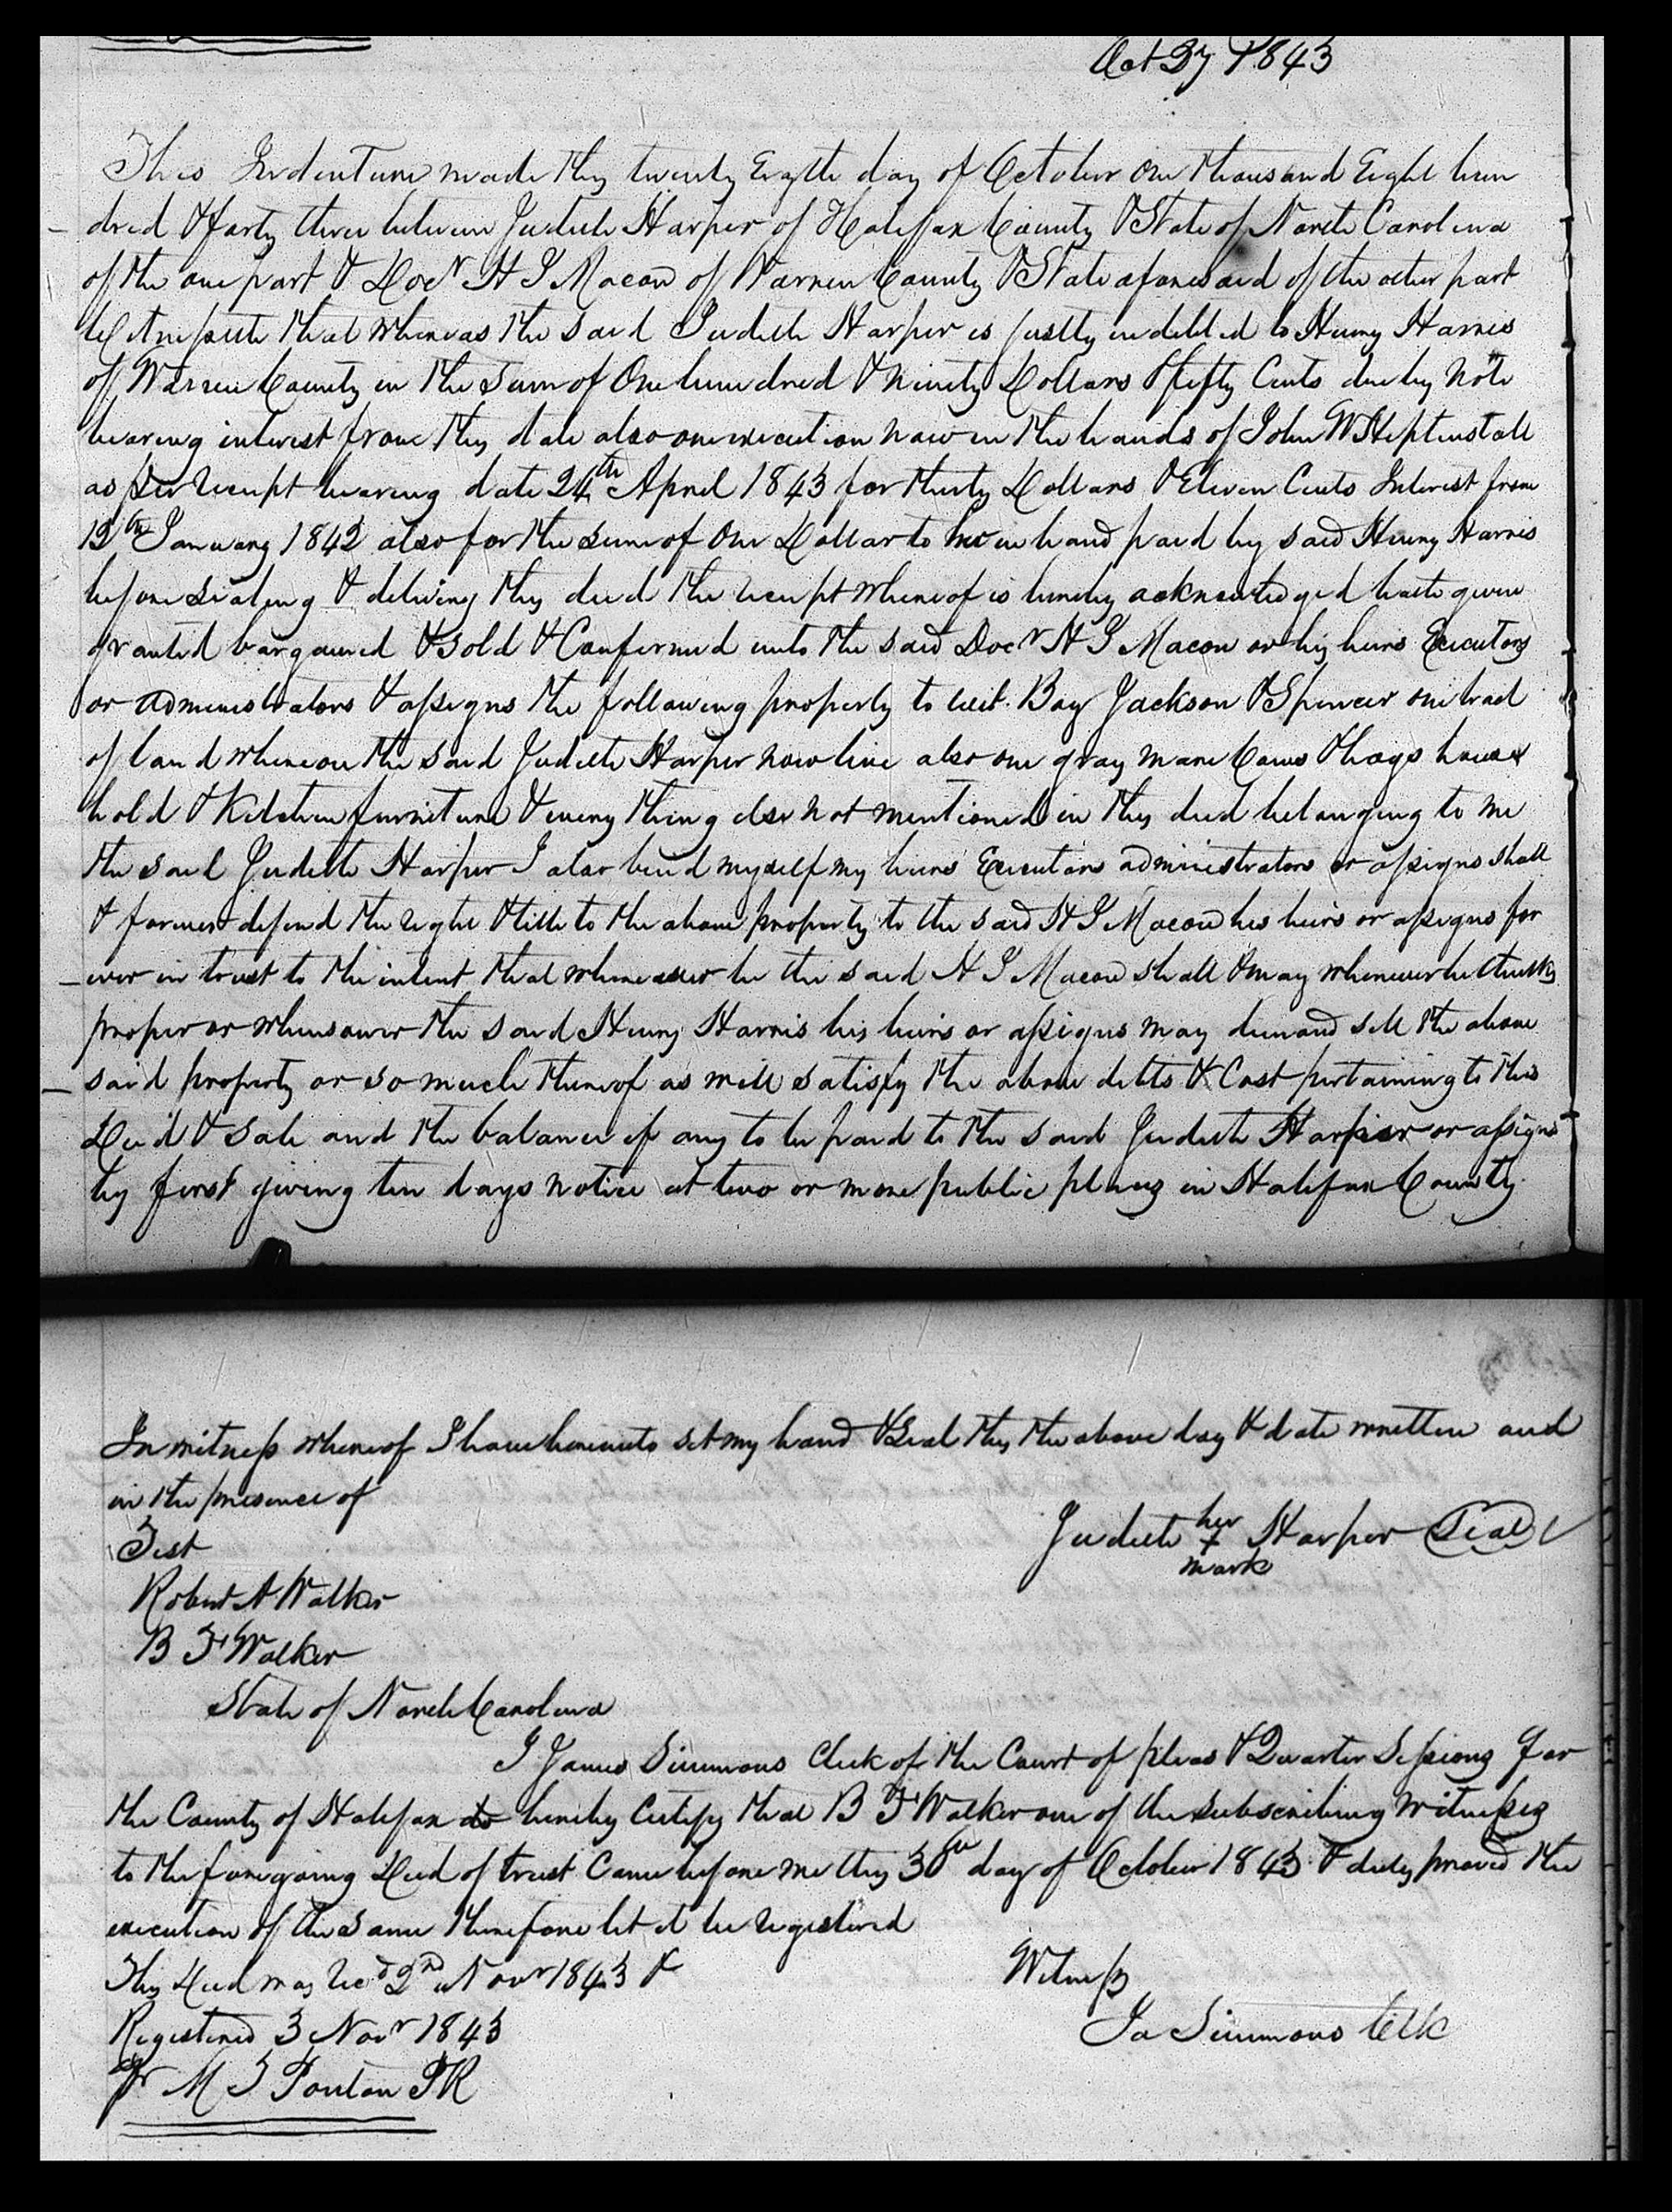 Oct 27 1843
This Indenture made this twenty Eighth day of October One thousand Eight hun
dred & forty three between Judith Harper of Halifax County & State of North Carolina
of the one part & Docr H G Macon of Warren County & State aforesaid of the other part
Witnesseth that whereas the said Judith Harper is justly indebted to Henry Harris
of Warren County in the sum of One hundred & Ninety Dollars & fifty Cents due by Note
bearing interest from this date also one execution now in the hands of John W Heptinstall
as per receipt bearing date 24th April 1843 for thirty Dollars & Eleven Cents Interest from
12th January 1842 also for the sum of One Dollar to her in hand paid by said Henry Harris
before sealing & delivery this deed the receipt whereof is hereby acknowledged hath given
granted bargained & sold & Confirmed unto the said Docr H G Macon or his heirs Executors
or administrators & assigns the following property to wit. Boy Jackson & Spencer one trad
of land whereon the said Judith Harper now live also one gray mare Cows & hogs house
hold & Kitchen furniture & every thing else not mentioned in this deed belonging to me
the said Judith Harper I also bind myself my heirs Executors administrators or assigns shall
& forever defend the right & title to the above property to the said H G Macon his heirs or assigns for
ever in trust to the intent that whereasever he the said H G Macon shall & may whenever he thinks
proper or whensoever the said Henry Harris his heirs or assigns may demand sell the above
said property or so much thereof as will satisfy the above debts & Cost pertaining to this
Deed & Sale and the balance if any to be paid to the said Judith Harper or assigns
by first giving ten days notice at two or more public places in Halifax County.
In witness whereof I have hereunto set my hand & Seal this the above day & date written and
in the presence of
Judith her x mark Harper Seal
Test
Robert A Walker
B F Walker
State of North Carolina
I James Simmons Clerk of the Court of pleas & Quarter Sessions for
the County of Halifax do hereby Certify that B F Walker one of the subscribing witnesses
to the foregoing Deed of trust Came before me this 30th day of October 1843 & duly proved the
execution of the same therefore let it be registered
Witness
This Deed was Recd 2nd Novr 1843 &
Registered 3 Novr 1843
Ja Simmons Clk
Pr M T Ponton PR